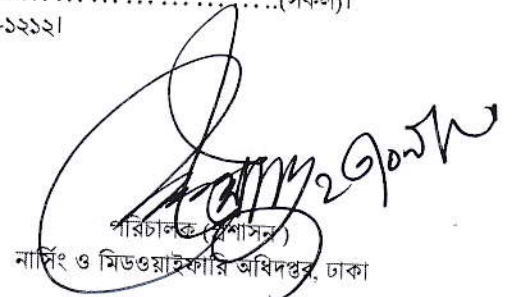 ..............................(সকল)।
-১২১২।
পরিচালক (প্রশাসন)
নার্সিং ও মিডওয়াইফারি অধিদপ্তর, ঢাকা